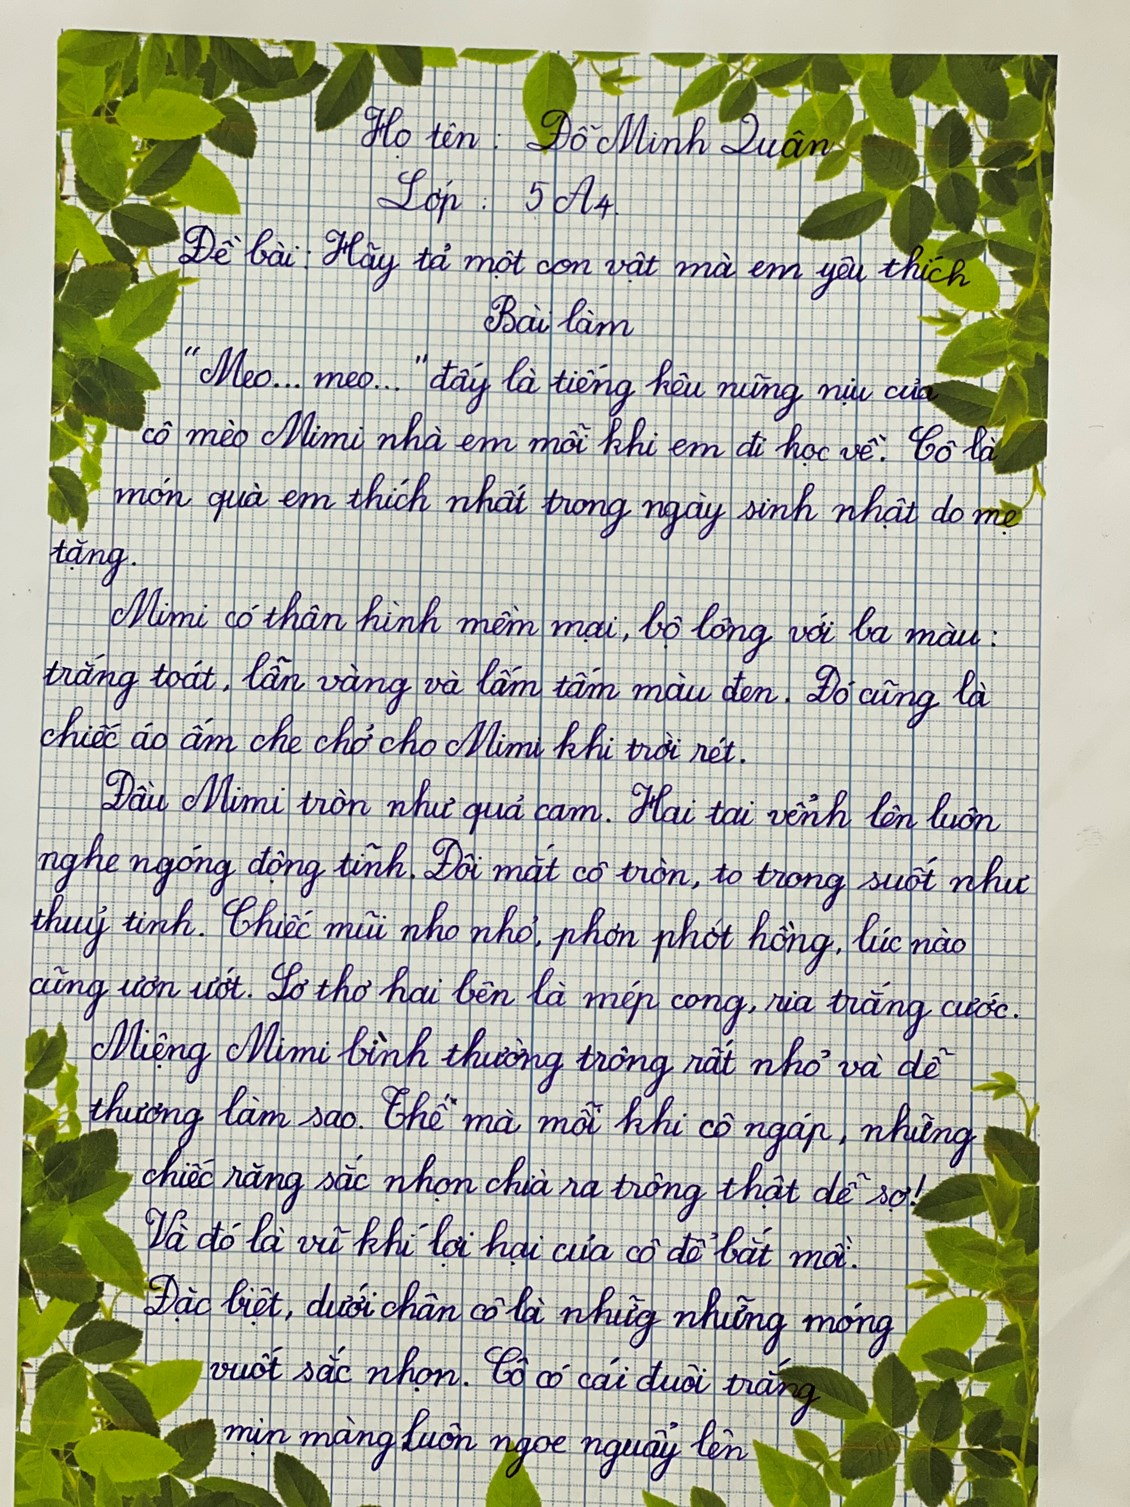 Họ tên : Đỗ Minh Quân
Lớp : 5A4.
Đề bài: Hãy tả một con vật mà em yêu thích
Bài làm
"Meo... meo..." đấy là tiếng kêu nũng nịu của
cô mèo Mimi nhà em mỗi khi em đi học về. Cô là
món quà em thích nhất trong ngày sinh nhật do mẹ
tặng.
Mimi có thân hình mềm mại, bộ lông với ba màu:
trắng toát, lẫn vàng và lấm tấm màu đen. Đó cũng là
chiếc áo ấm che chở cho Mimi khi trời rét.
Đầu Mimi tròn như quả cam. Hai tai vểnh lên luôn
nghe ngóng động tĩnh. Đôi mắt cô tròn, to trong suốt như
thuỷ tinh. Chiếc mũi nho nhỏ, phơn phớt hồng, lúc nào
cũng ươn ướt. Lơ thơ hai bên là mép cong, ria trắng cước.
Miệng Mimi bình thường trông rất nhỏ và dễ
thương làm sao. Thế mà mỗi khi cô ngáp, những
chiếc răng sắc nhọn chìa ra trông thật dễ sợ!
Và đó là vũ khí lợi hại của cô để bắt mồi.
Đặc biệt, dưới chân cô là nhữg những móng
vuốt sắc nhọn. Cô có cái đuôi trắng
mịn màng luôn ngoe nguẩy lên